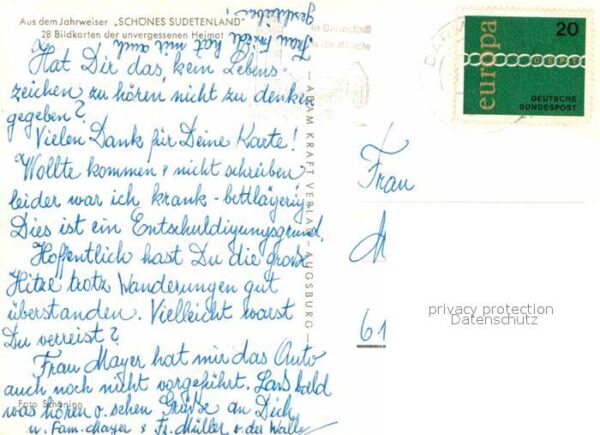 Aus dem Jahrweiser „SCHÖNES SUDETENLAND"
28 Bildkarten der unvergessenen Heimat
Frau Friedl hat mir auch
geschrieben!
Hat Dir das, kein Lebens
zeichen zu hören, nicht zu denken
gegeben?
Vielen Dank für Deine Karte!
Wollte kommen & nicht schreiben
leider war ich krank - bettlägerig.
Dies ist ein Entschuldigungsgrund.
Hoffentlich hast Du die große
Hitze trotz Wanderungen gut
überstanden. Vielleicht warst
Du verreist?
Frau Mayer hat mir das Auto
auch noch nicht vorgeführt. Lass bald
was hören o. sehen Grüße an Dich
u. Fam. Mayer & Fr. Müller v. der
Foto Schöning
— ADAM KRAFT VERLAG — AUGSBURG —
in Darmstadt
die Künste
20
europa
CEPT
DEUTSCHE
BUNDESPOST
Frau
M
61
privacy protection
Datenschutz